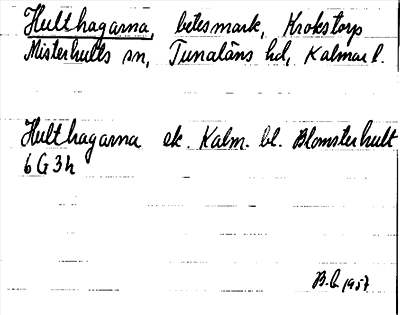 Hulthagarna, betesmark, Krokstorp
Misterhults sn, Tunaläns hd, Kalmar l.
Hulthagarna ek. Kalm. bl. Blomsterhult
6 G 3 h
B.L. 1957